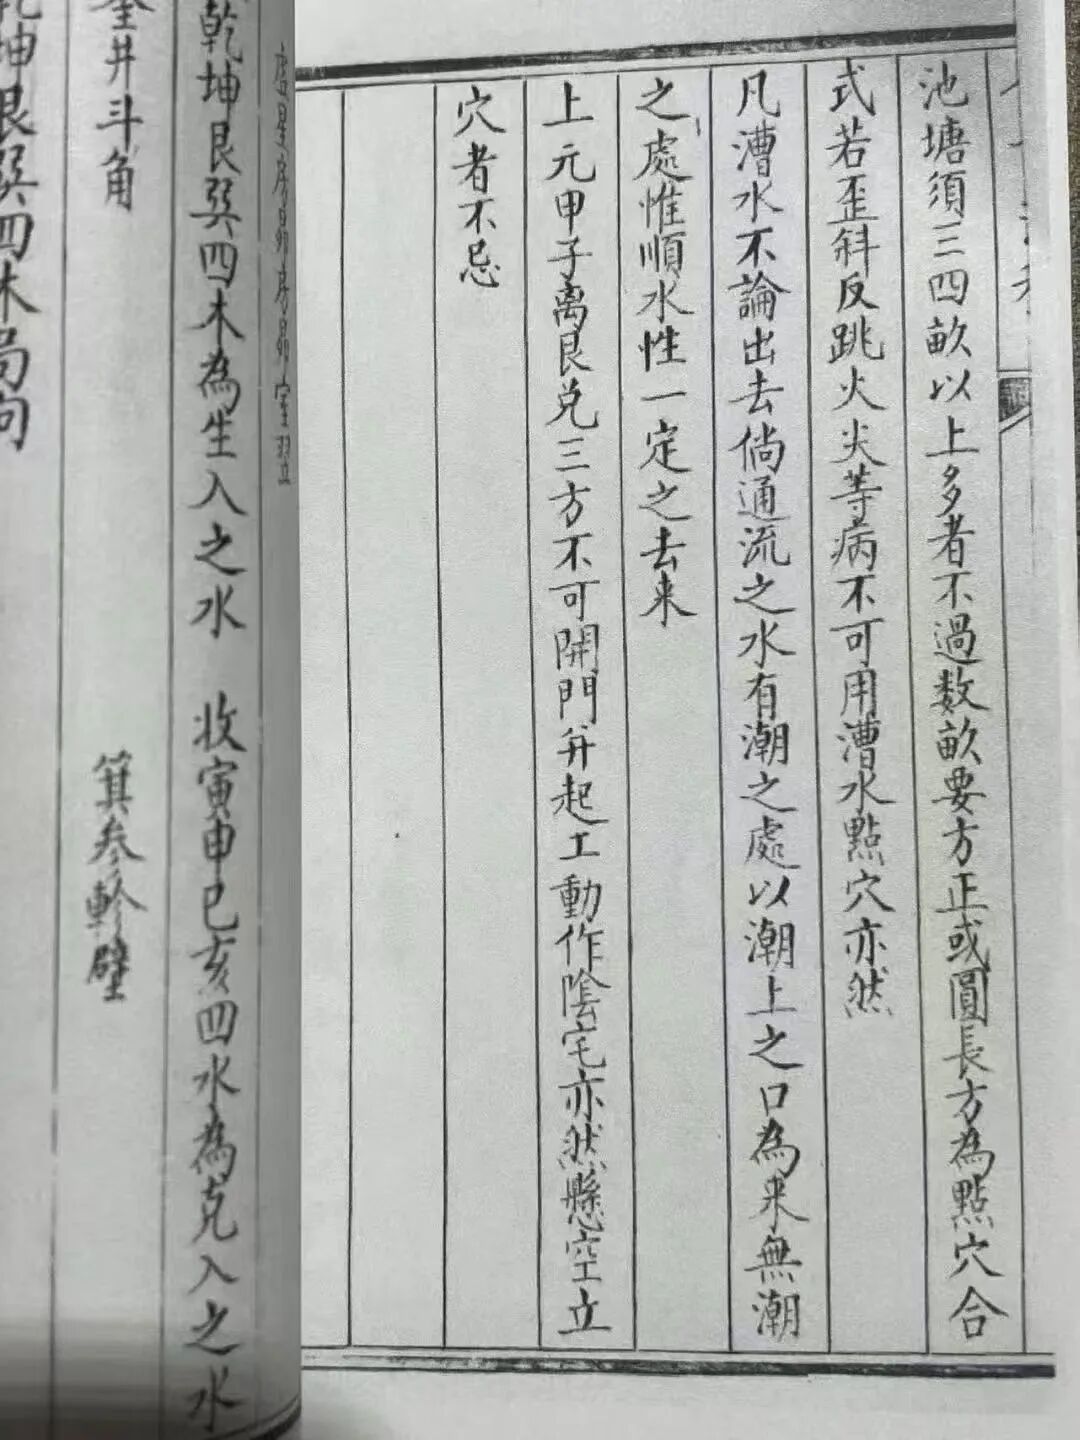 池塘須三四畝以上多者不過数畝要方正或圓長方為點穴合
式若歪斜反跳火尖等病不可用漕水點穴亦然
凡漕水不論出去倘通流之水有潮之處以潮上之口為来無潮
之處惟順水性一定之去来
上元甲子离艮兑三方不可開門并起工動作陰宅亦然懸空立
穴者不忌
虚星房昴房昴室翌
乾坤艮巽四木為生入之水　收寅申巳亥四水為克入之水
奎井斗角　箕参軫壁
乾坤艮巽四木局向